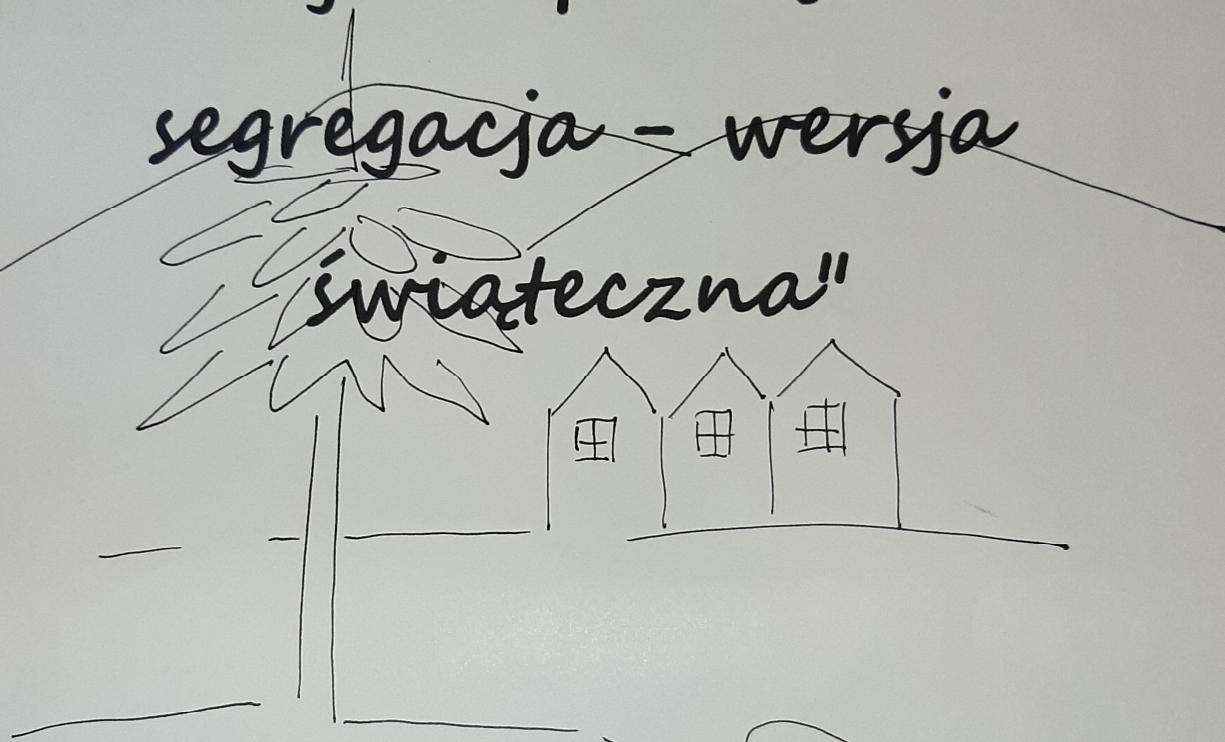 segregacja - wersja
świąteczna"